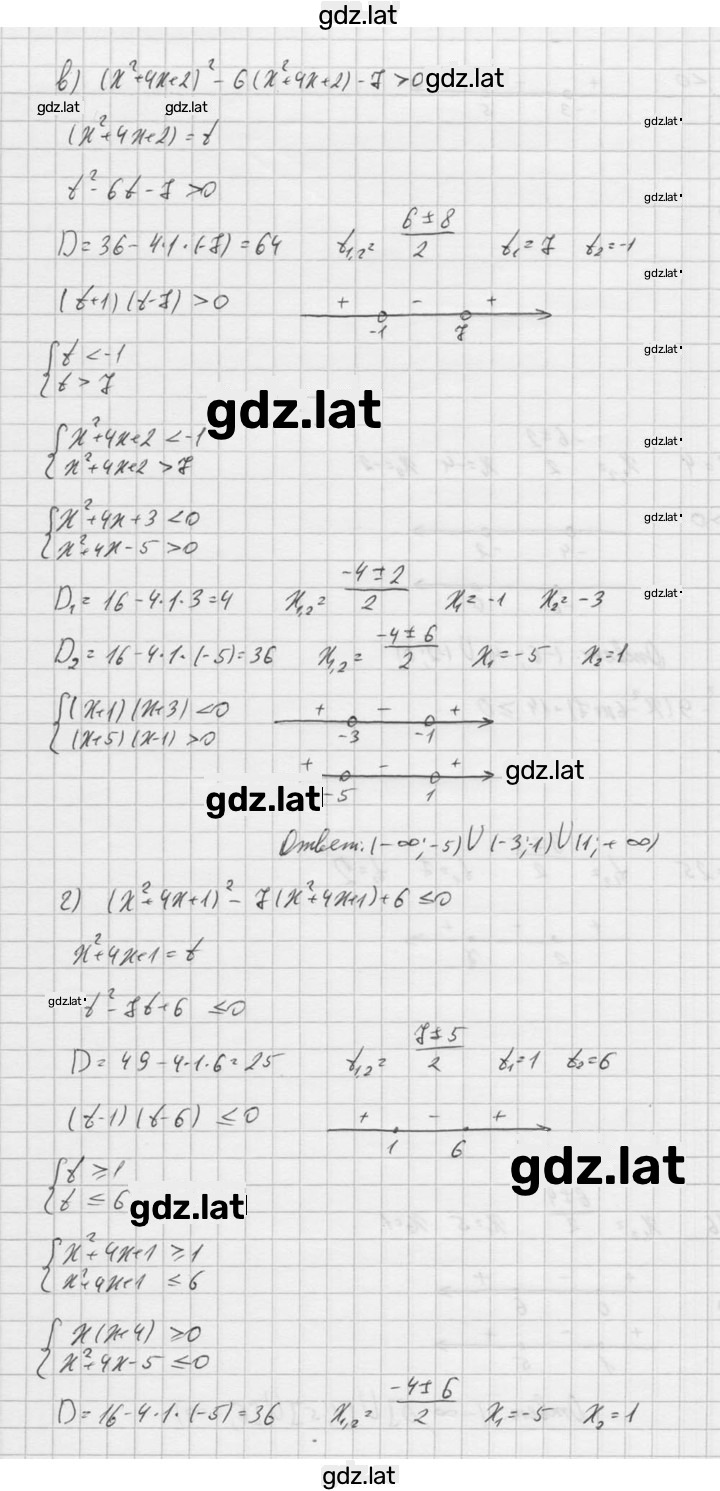 gdz.lat
в) (x²+4x+2)² - 6(x²+4x+2) - 7 >0 gdz.lat
gdz.lat gdz.lat
(x²+4x+2) = t gdz.lat
t² - 6t - 7 >0 gdz.lat
D = 36 - 4·1·(-7) = 64 t₁,₂ = (6 ± 8)/2 t₁ = 7 t₂ = -1
gdz.lat
(t+1)(t-7) >0 + - +
-1 7
{ t < -1 gdz.lat
{ t > 7
gdz.lat
{ x²+4x+2 < -1 gdz.lat
{ x²+4x+2 > 7
{ x²+4x+3 <0 gdz.lat
{ x²+4x-5 >0
D₁ = 16 - 4·1·3 = 4 x₁,₂ = (-4 ± 2)/2 x₁ = -1 x₂ = -3 gdz.lat
D₂ = 16 - 4·1·(-5) = 36 x₁,₂ = (-4 ± 6)/2 x₁ = -5 x₂ = 1
{ (x+1)(x+3) <0 + - +
{ (x+5)(x-1) >0 -3 -1
+ - + gdz.lat
gdz.lat -5 1
Ответ: (-∞; -5) ∪ (-3; 1) ∪ (1; +∞)
г) (x²+4x+1)² - 7(x²+4x+1) + 6 ≤0
x²+4x+1 = t
gdz.lat t² - 7t + 6 ≤0
D = 49 - 4·1·6 = 25 t₁,₂ = (7 ± 5)/2 t₁ = 1 t₂ = 6
(t-1)(t-6) ≤0 + - +
1 6
gdz.lat
{ t ≥ 1
{ t ≤ 6 gdz.lat
{ x²+4x+1 ≥ 1
{ x²+4x+1 ≤ 6
{ x(x+4) ≥0
{ x²+4x-5 ≤0
D = 16 - 4·1·(-5) = 36 x₁,₂ = (-4 ± 6)/2 x₁ = -5 x₂ = 1
gdz.lat